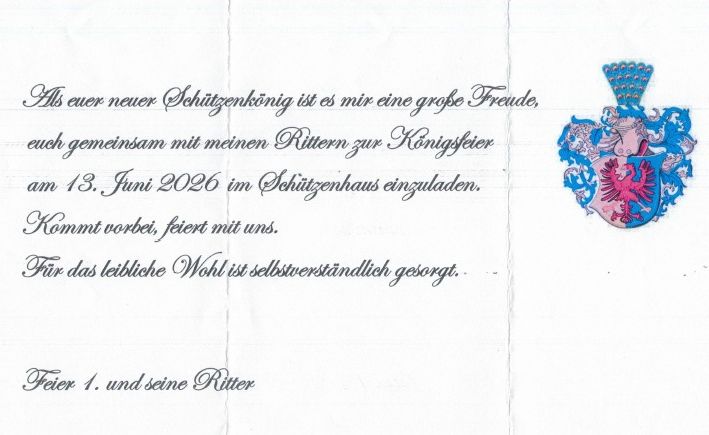 Als euer neuer Schützenkönig ist es mir eine große Freude,
euch gemeinsam mit meinen Rittern zur Königsfeier
am 13. Juni 2026 im Schützenhaus einzuladen.
Kommt vorbei, feiert mit uns.
Für das leibliche Wohl ist selbstverständlich gesorgt.
Feier 1. und seine Ritter